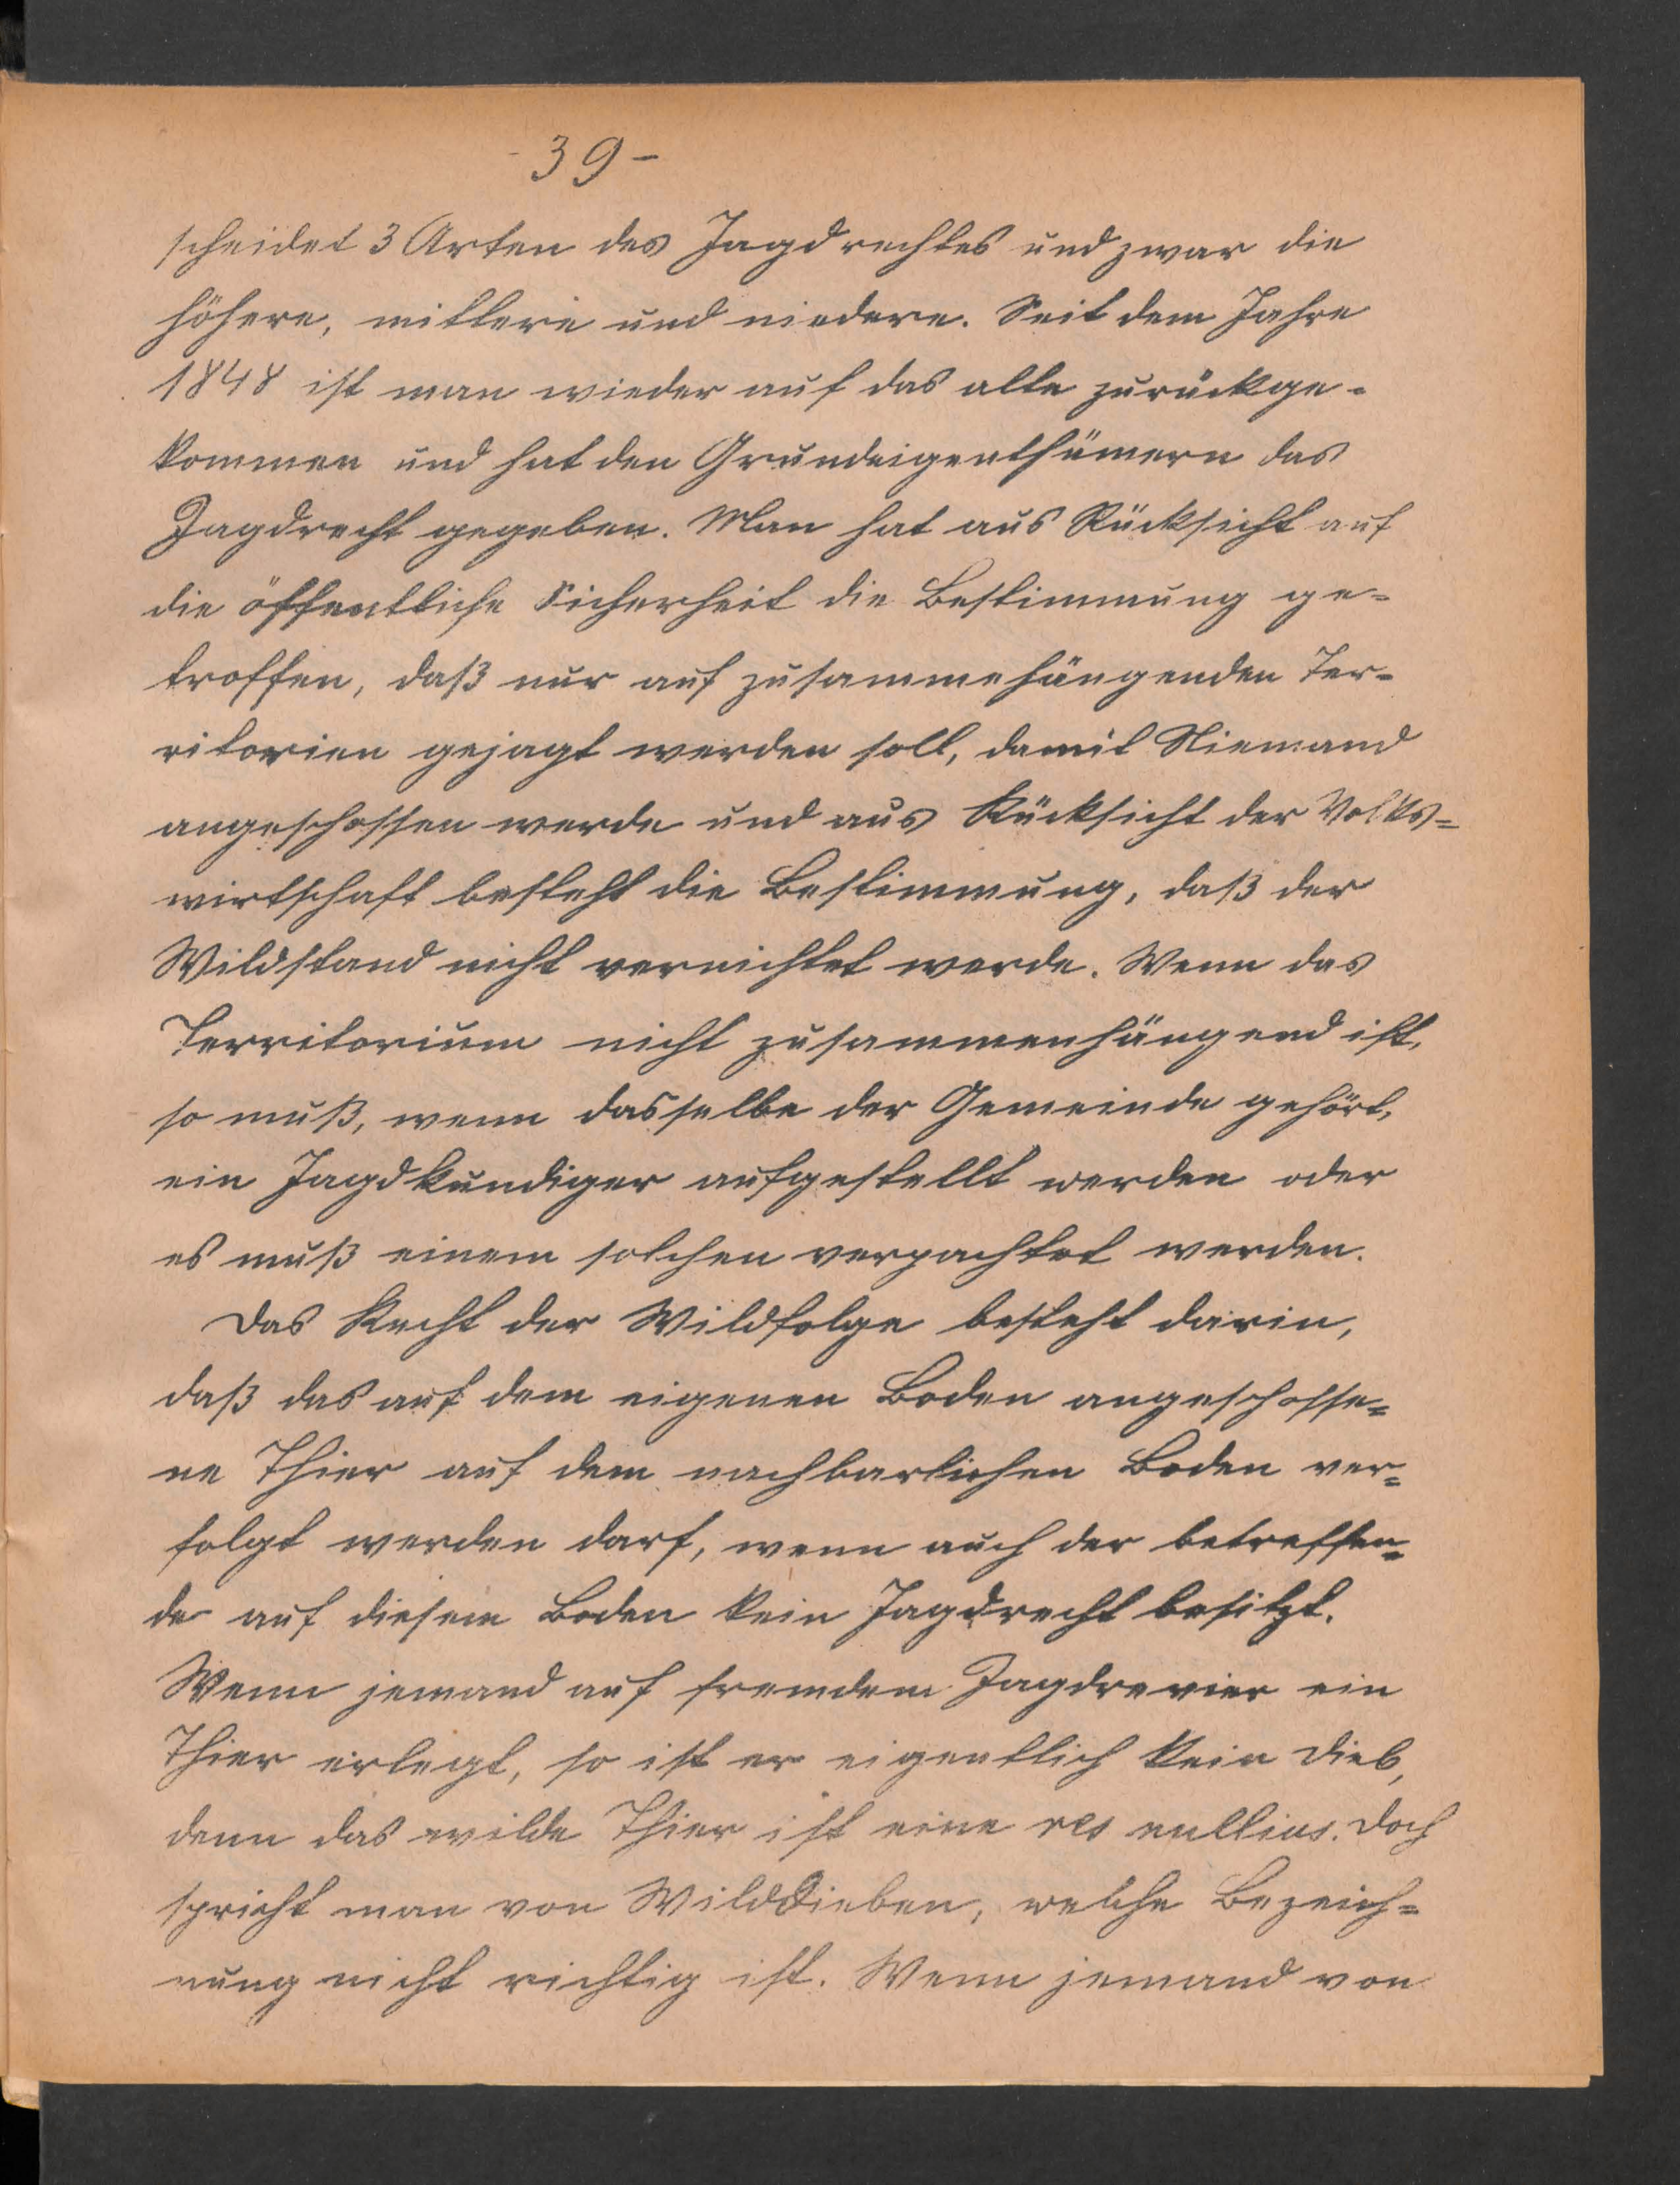 - 39 -
scheidet 3 Arten des Jagdrechtes und zwar die
höhere, mittlere und niedere. Seit dem Jahre
1848 ist man wieder auf das alte zurückge-
kommen und hat den Grundeigenthümern das
Jagdrecht gegeben. Man hat aus Rücksicht auf
die öffentliche Sicherheit die Bestimmung ge=
troffen, daß nur auf zusammehängenden Ter=
ritorien gejagt werden soll, damit Niemand
angeschossen werde und aus Rücksicht der Volks=
wirtschaft besteht die Bestimmung, daß der
Wildstand nicht vernichtet werde. Wenn das
Territorium nicht zusammenhängend ist,
so muß, wenn dasselbe der Gemeinde gehört,
ein Jagdkundiger aufgestellt werden oder
es muß einem solchen verpachtet werden.
Das Recht der Wildfolge besteht darin,
daß das auf dem eigenen Boden angeschosse=
ne Thier auf dem nachbarlichen Boden ver=
folgt werden darf, wenn auch der betreffen=
de auf diesem Boden kein Jagdrecht besitzt.
Wenn jemand auf fremdem Jagdrevier ein
Thier erlegt, so ist er eigentlich kein Dieb,
denn das wilde Thier ist eine res nullius. Doch
spricht man von Wilddieben, welche Bezeich=
nung nicht richtig ist. Wenn jemand von